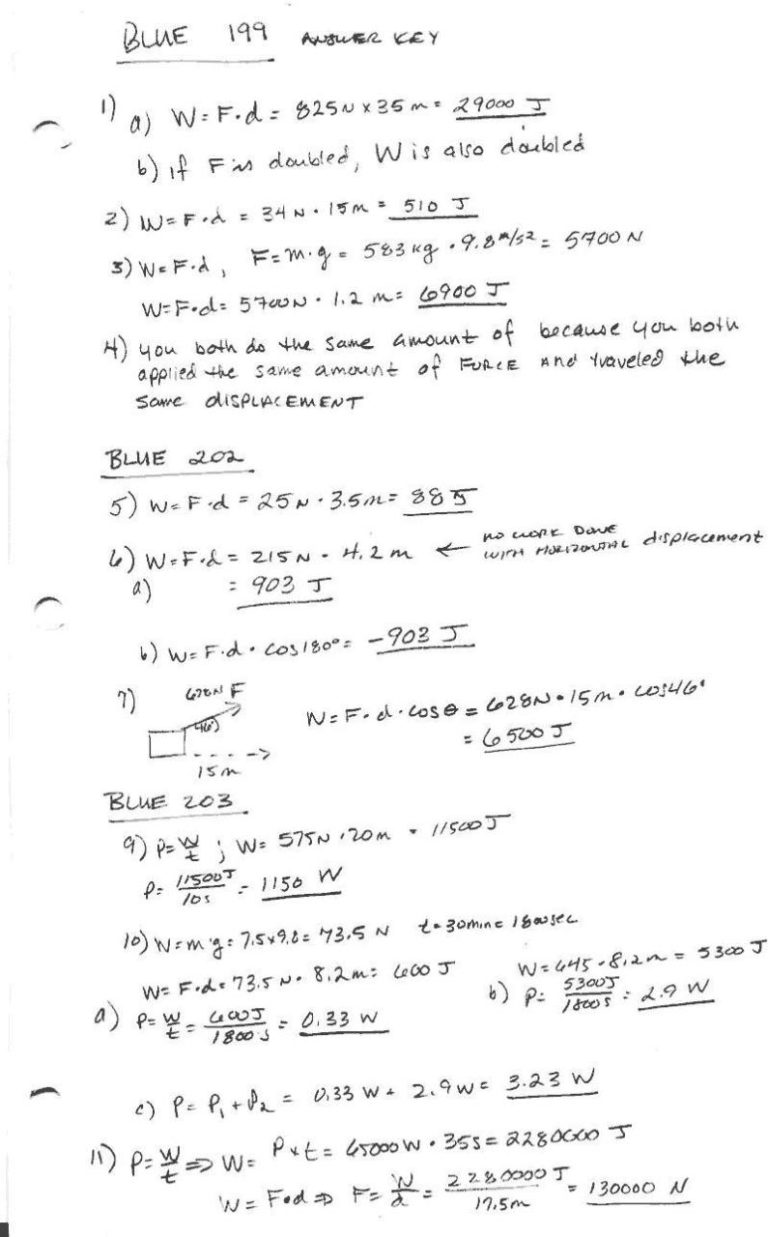 BLUE 199 ANSWER KEY
1) a) W = F·d = 825N x 35 m = 29000 J
b) if F is doubled, W is also doubled
2) W = F·d = 34 N · 15 m = 510 J
3) W = F·d, F = m·g = 583 kg · 9.8 m/s2 = 5700 N
W = F·d = 5700N · 1.2 m = 6900 J
4) you both do the same amount of because you both
applied the same amount of FORCE And traveled the
same DISPLACEMENT
BLUE 202
5) W = F·d = 25N · 3.5m = 88 J
6) W = F·d = 215N · 4.2 m ← no work Done
with HORIZONTAL displacement
a) = 903 J
b) W = F·d · cos180° = -903 J
7) 628N F
46°
15m
W = F·d·cosθ = 628N · 15m · cos46°
= 6500 J
BLUE 203
9) P = W/t ; W = 575N · 20m = 11500 J
P = 11500J/10s = 1150 W
10) W = m·g = 7.5x9.8 = 73.5 N t = 30min = 1800sec
W = F·d = 73.5 N · 8.2m = 600 J
a) P = W/t = 600J/1800s = 0.33 W
W = 645 · 8.2m = 5300 J
b) P = 5300J/1800s = 2.9 W
c) P = P1 + P2 = 0.33 W + 2.9W = 3.23 W
11) P = W/t ⇒ W = P x t = 65000W · 35s = 2280000 J
W = F·d ⇒ F = W/d = 2280000 J/17.5m = 130000 N